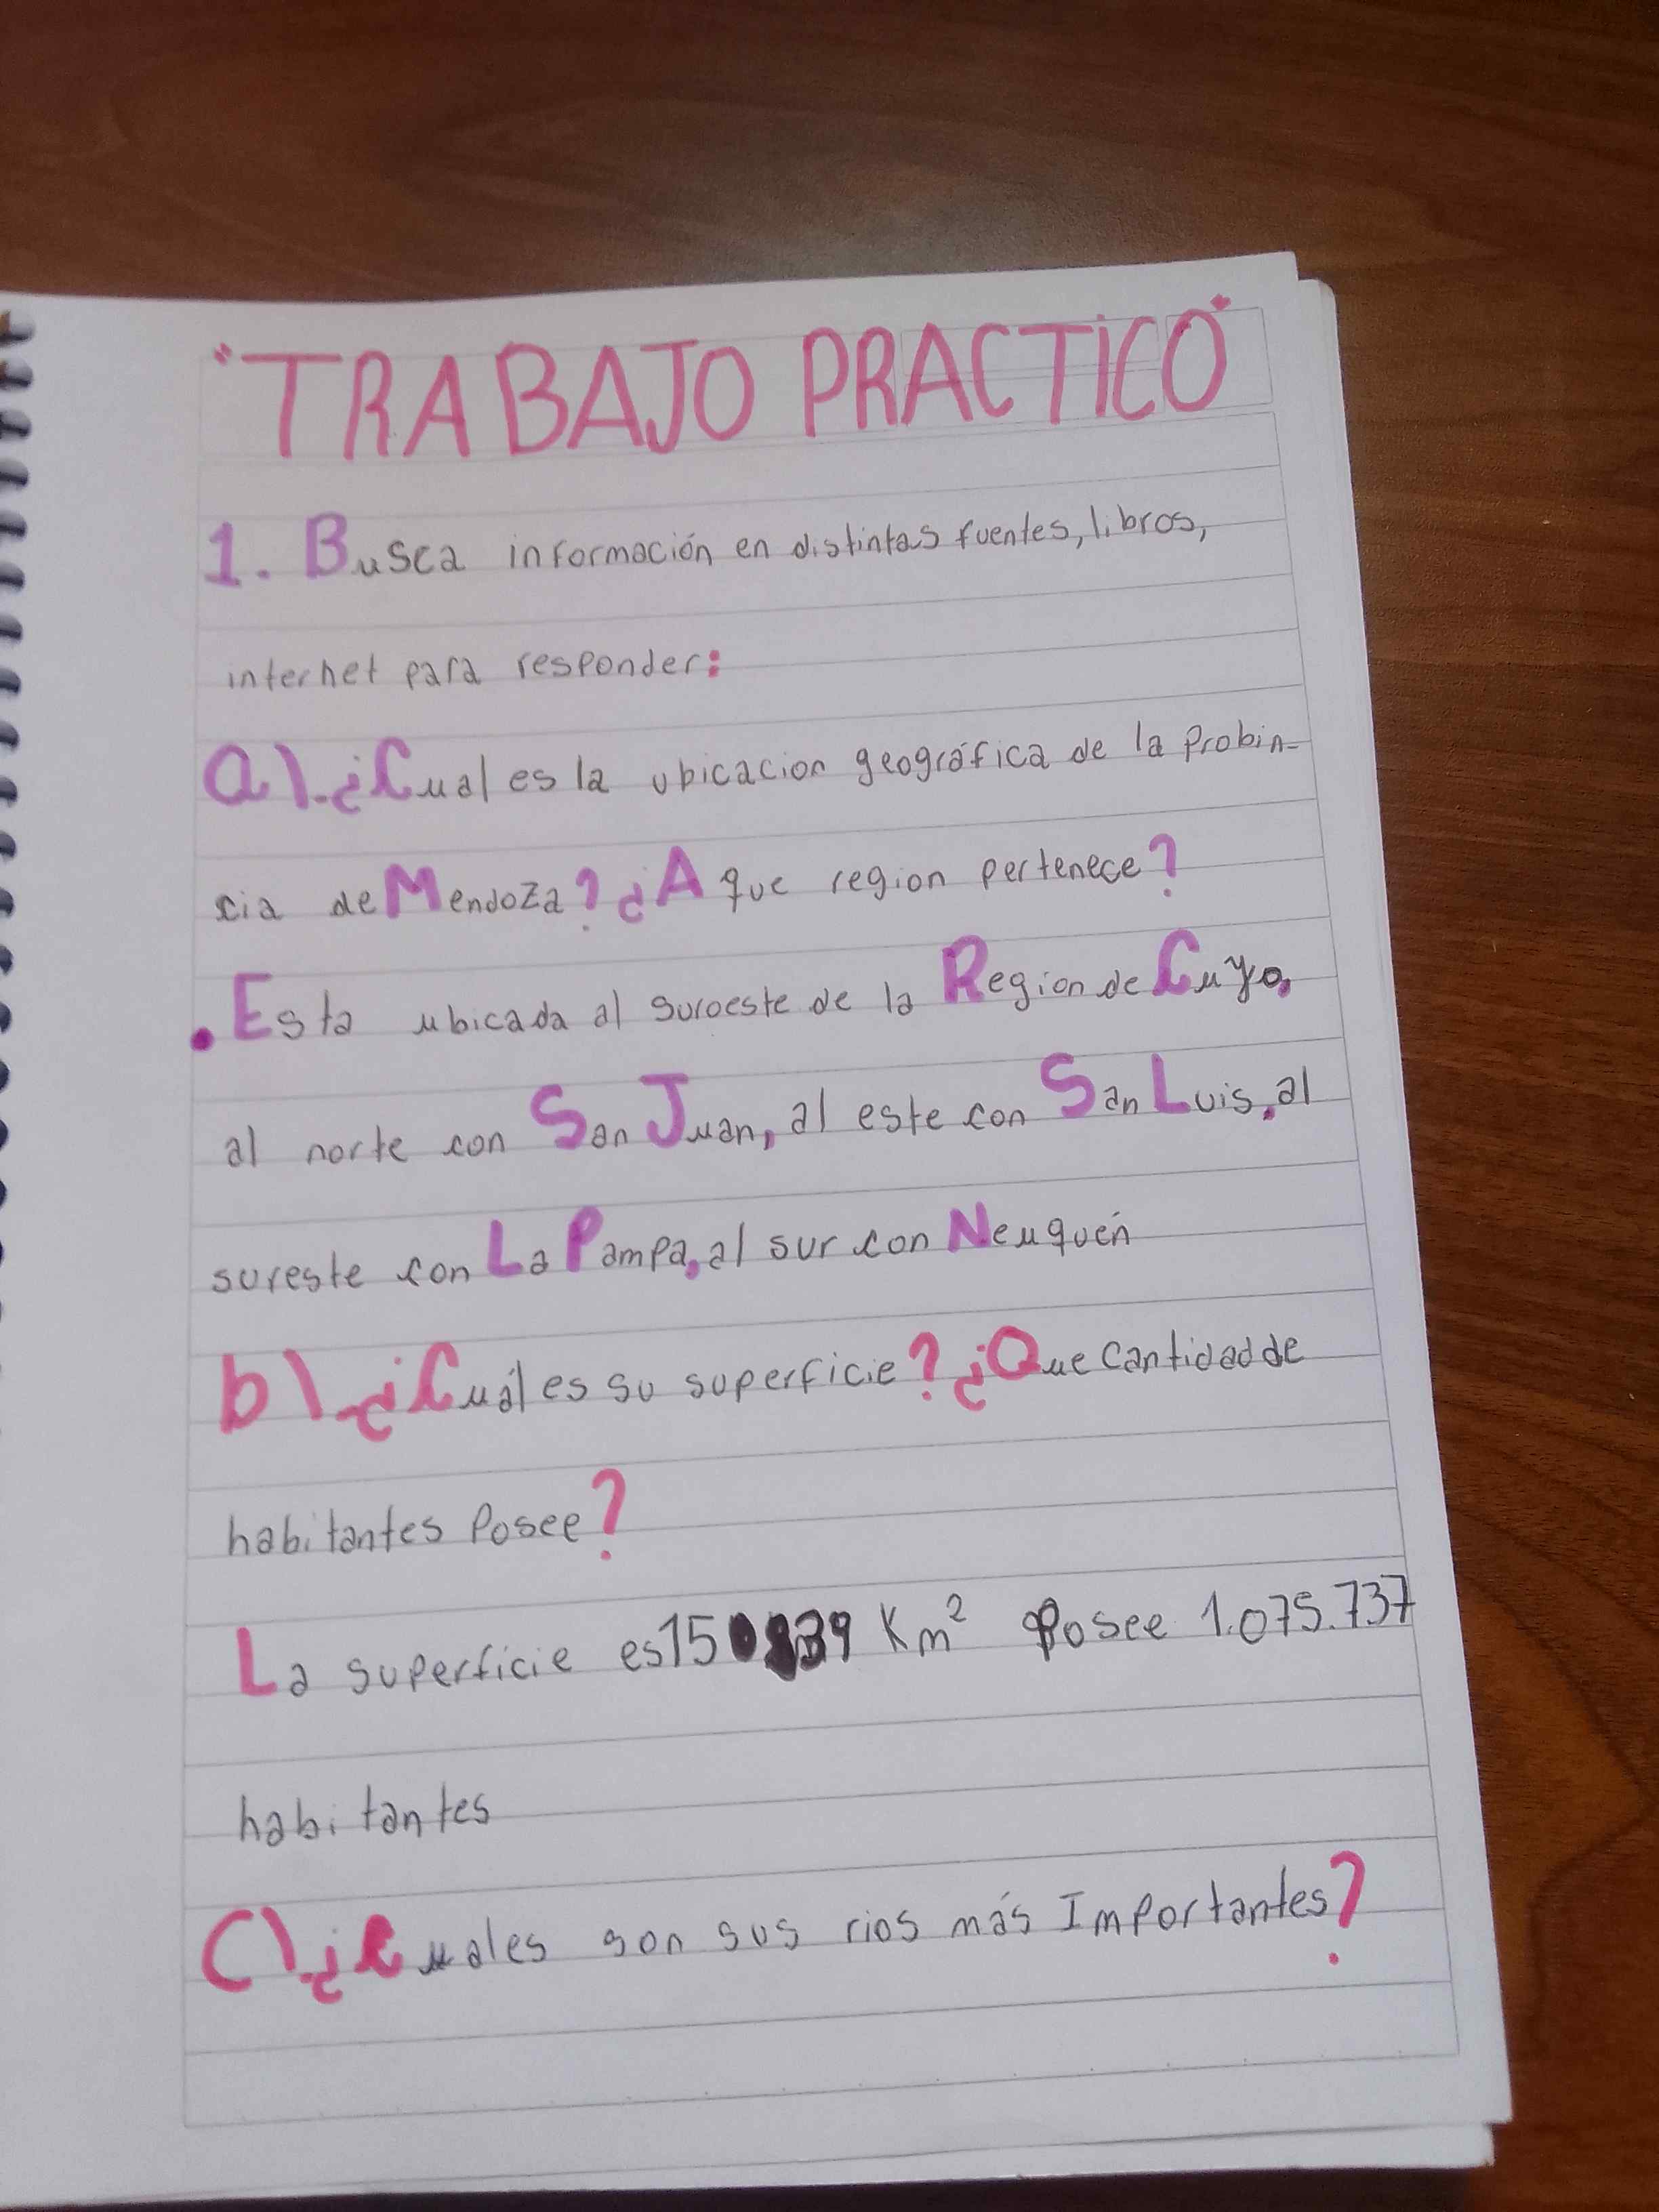 "TRABAJO PRACTICO"
1. Busca información en distintas fuentes, libros,
internet para responder:
a).¿Cual es la ubicacion geográfica de la Probin-
cia de Mendoza? ¿A que region pertenece?
. Esta ubicada al suroeste de la Region de Cuyo,
al norte con San Juan, al este con San Luis, al
sureste con La Pampa, al sur con Neuquén
b).¿Cuál es su superficie? ¿Que cantidad de
habitantes Posee?
La superficie es Km² Posee 1.075.737
habitantes
C).¿Cuales son sus rios más Importantes?